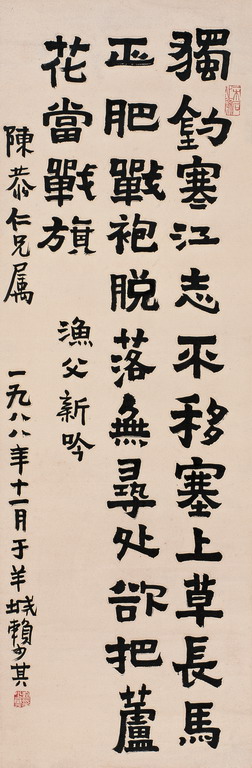 獨釣寒江志不移塞上草長馬
正肥戰袍脱落無尋处欲把蘆
花當戰旗
漁父新吟
陳恭仁兄属
一九八八年十一月于羊城賴少其